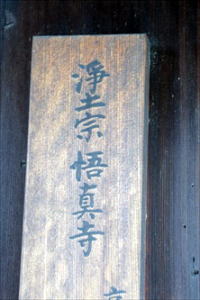 浄土宗悟真寺